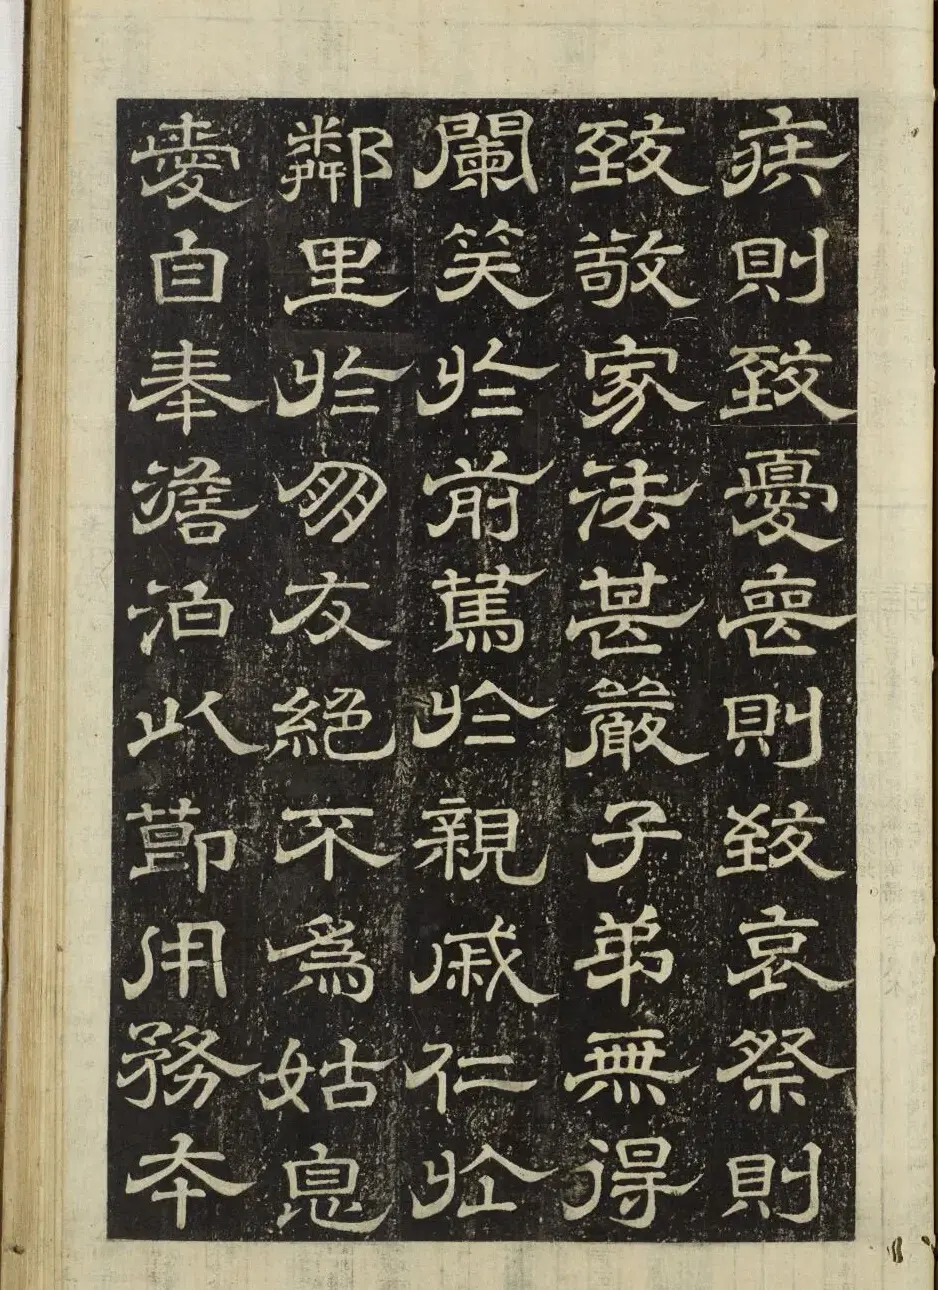 疾則致憂喪則致哀祭則
致敬家法甚嚴子弟無得
闌笑於前篤於親戚仁於
鄰里於朋友絕不爲姑息
愛自奉澹泊以節用務本